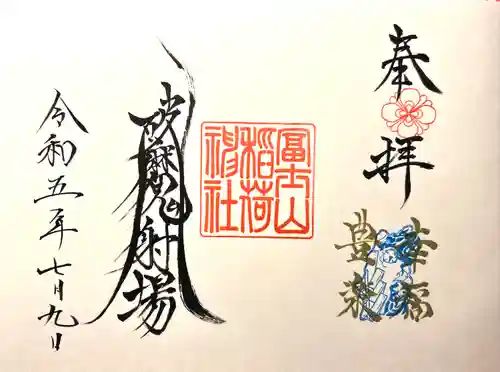 奉拝
幸福
豊穣
冨士山
稲荷
神社
破魔射場
令和五年七月九日